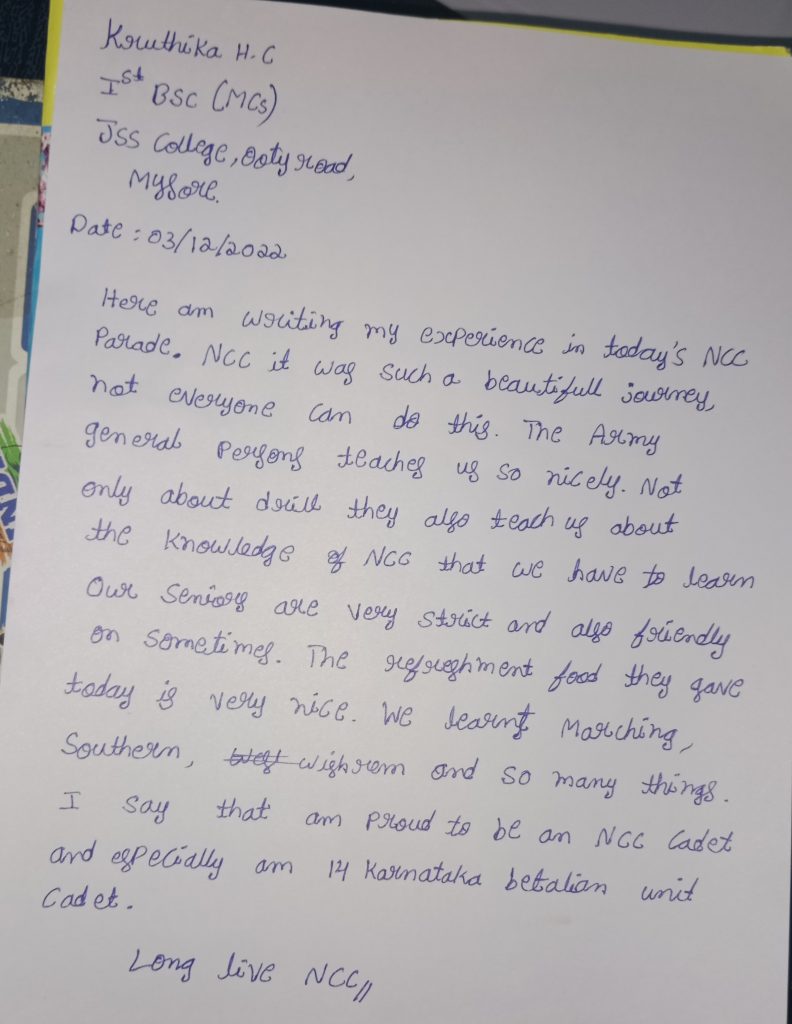 Kruthika H.C
Ist BSC (MCs)
JSS College, Ooty road,
Mysore.
Date : 03/12/2022
Here am writing my experience in today's NCC
Parade. NCC it was such a beautifull journey,
not everyone can do this. The Army
general Persons teaches us so nicely. Not
only about drill they also teach us about
the knowledge of NCC that we have to learn
Our Seniors are very strict and also friendly
on sometimes. The refreshment food they gave
today is very nice. We learnt Marching,
Southern, wishrem and so many things.
I say that am proud to be an NCC Cadet
and especially am 14 Karnataka betalian unit
Cadet.
Long live NCC//